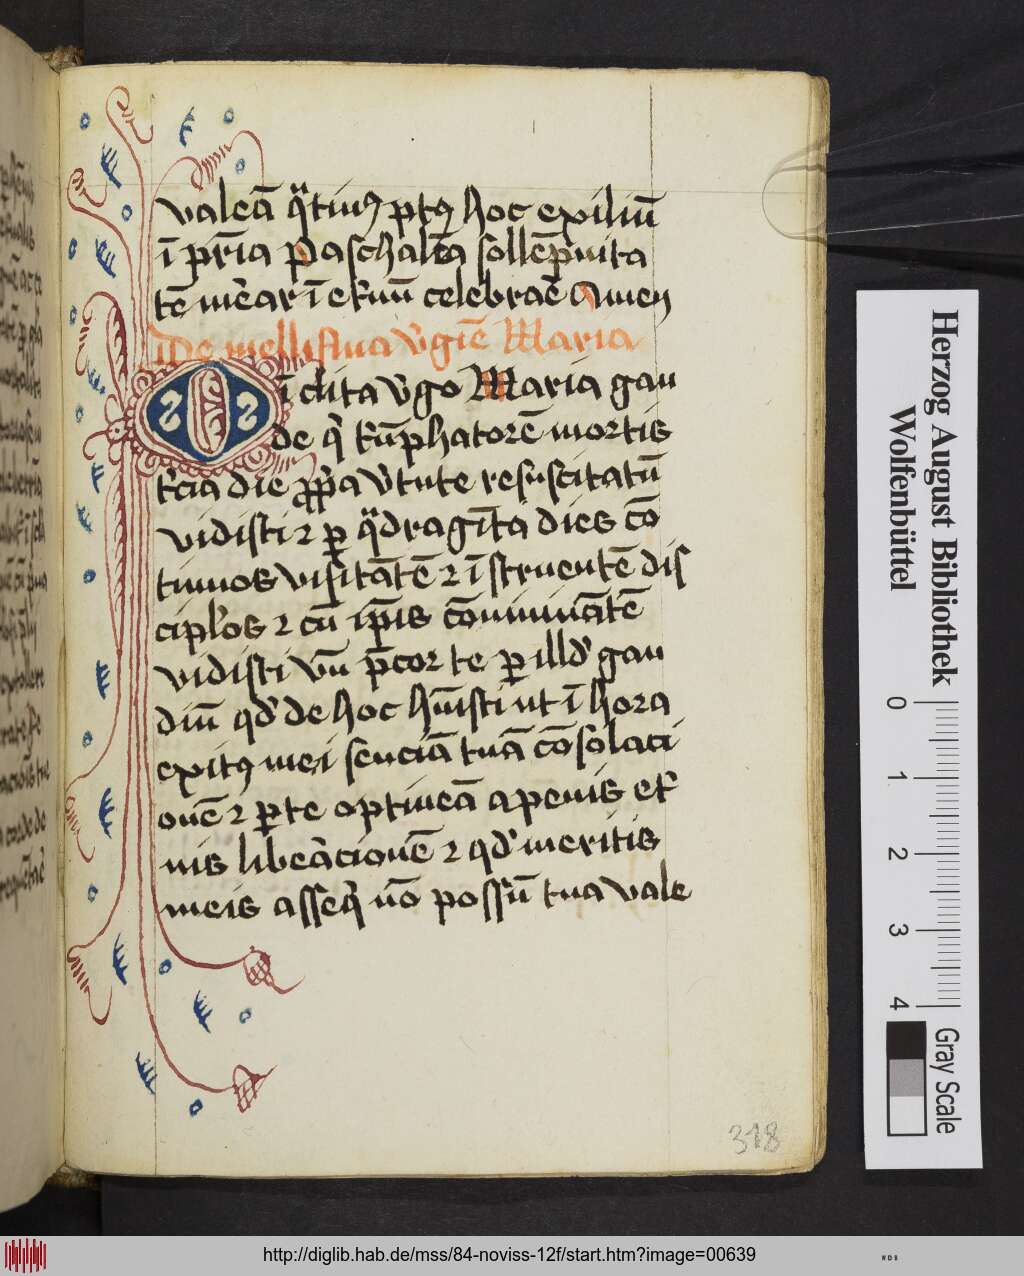 valeā q̈tinꝰ ptꝰ hoc exiliū
ī pr̄ia paschalēa sollēpnita
tē mēar ī et̉nū celebraē Amen
De melliflua v̉giē Maria
O īclita v̉go Maria gau
de q̉ t̉ūphatorē mortis
t̉cia die ꝓp̉a v̉tute resuscitatū
vidisti ⁊ ꝑ q̈dragīta dies cō
timos visitātē ⁊ īstruentē dis
cipl̉os ⁊ cū ip̄is cōmunicātē
vidisti vn̄ p̄cor te ꝑ illd̉ gau
diū qd̉ de hoc hūisti ut ī hora
exitꝰ mei senciā tuā cōsolaci
onē ⁊ ꝑ te optineā a penis et̉
nis libeācionē ⁊ qd̉ meritis
meis asseq̉ nō possū tua vale
318
Herzog August Bibliothek
Wolfenbüttel
0 1 2 3 4
Gray Scale
http://diglib.hab.de/mss/84-noviss-12f/start.htm?image=00639